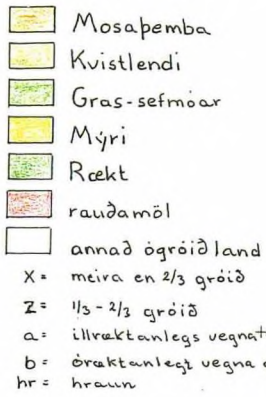 Mosaþemba
Kvistlendi
Gras-sefmóar
Mýri
Rækt
rauðamöl
annað ógróið land
X = meira en 2/3 gróið
Z = 1/3 - 2/3 gróið
a = illræktanlegs vegna
b = óræktanlegt vegna
hr = hraun